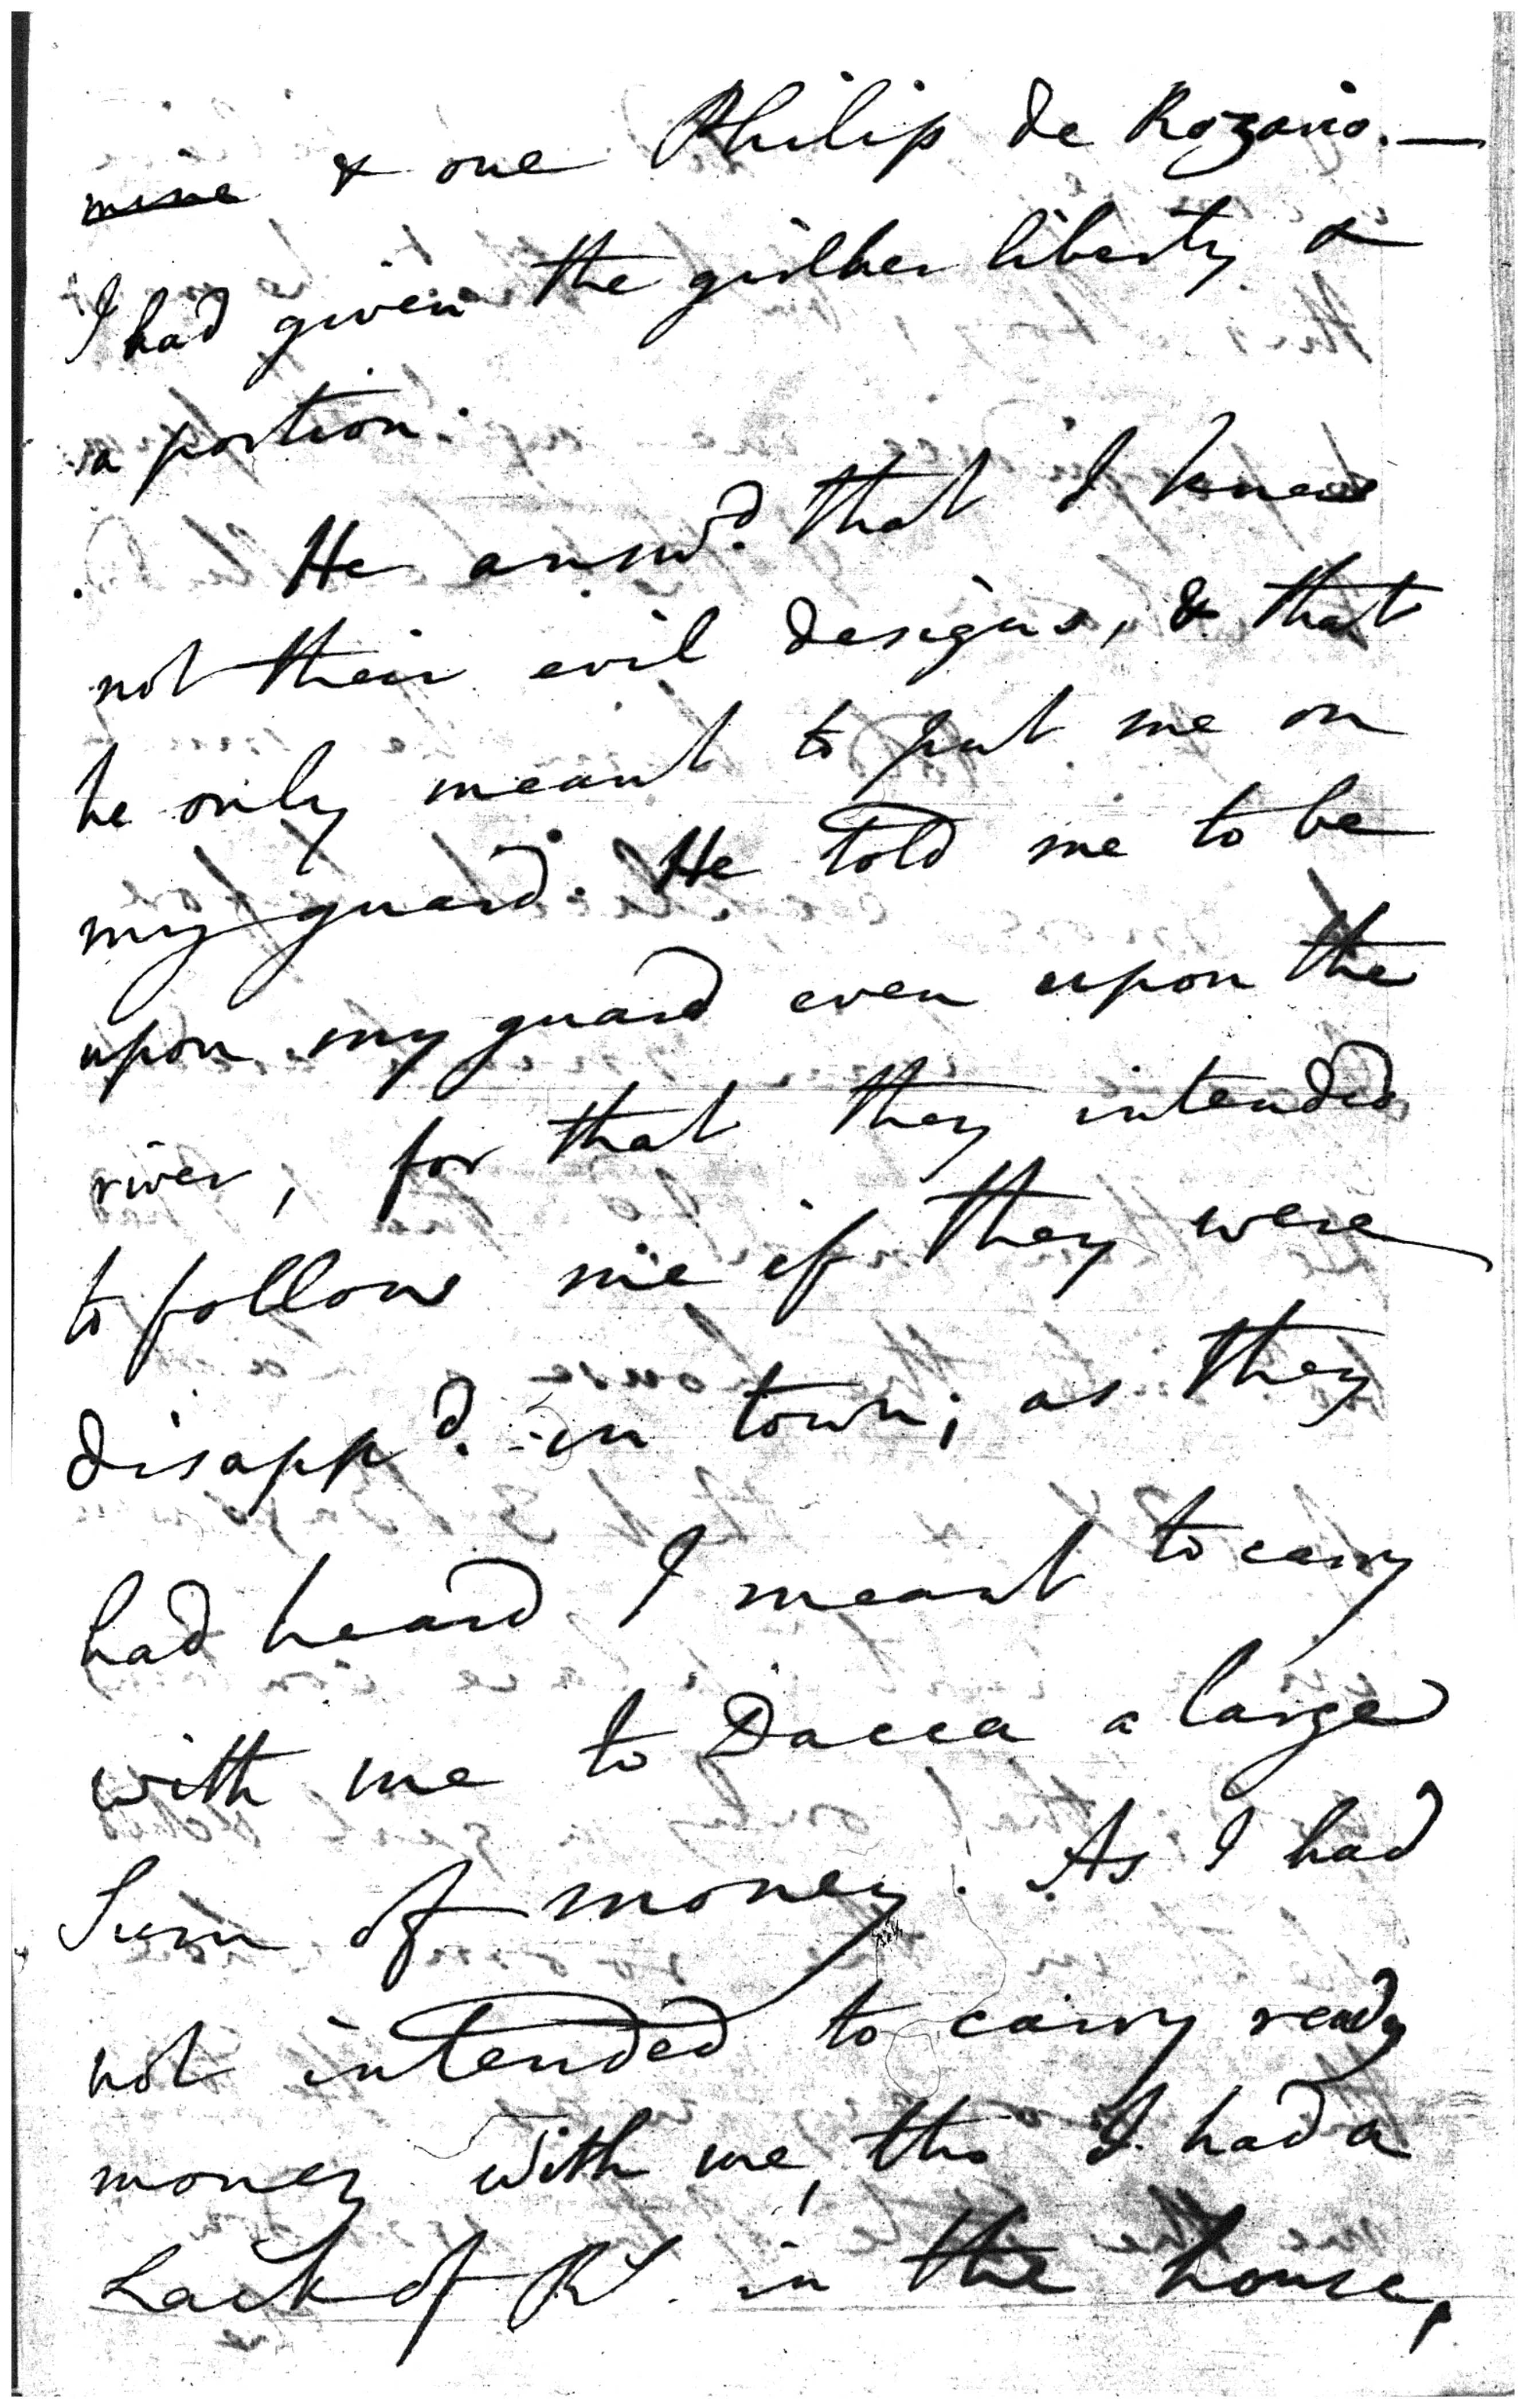 mine & one Philip de Rozario. —
I had given the girl her liberty &
a portion.
He answd. that I knew
not their evil designs, & that
he only meant to put me on
my guard. He told me to be
upon my guard even upon the
river, for that they intended
to follow me if they were
disappd. in town; as they
had heard I meant to carry
with me to Dacca a large
Sum of money. As I had
not intended to carry ready
money with me, tho I had a
Lack of Rs. in the house,